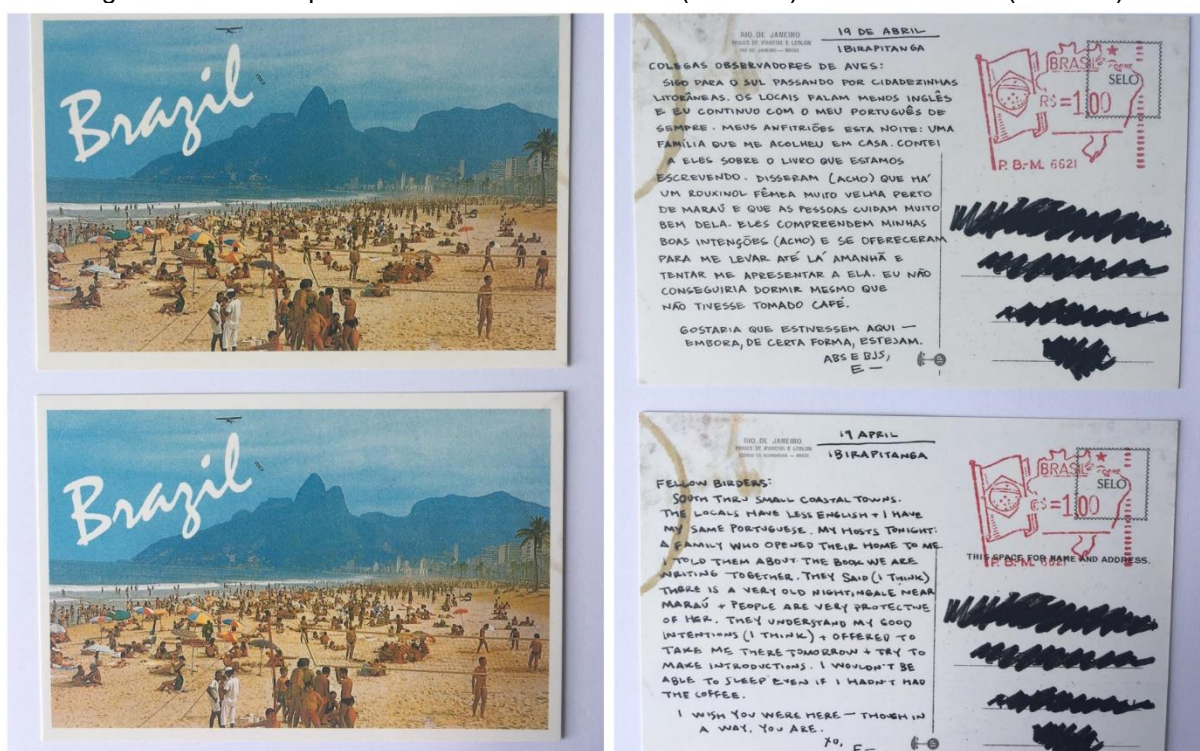 Brazil
RIO DE JANEIRO
19 DE ABRIL
IBIRAPITANGA
COLEGAS OBSERVADORES DE AVES:
SIGO PARA O SUL PASSANDO POR CIDADEZINHAS
LITORÂNEAS. OS LOCAIS FALAM MENOS INGLÊS
E EU CONTINUO COM O MEU PORTUGUÊS DE
SEMPRE. MEUS ANFITRIÕES ESTA NOITE: UMA
FAMÍLIA QUE ME ACOLHEU EM CASA. CONTEI
A ELES SOBRE O LIVRO QUE ESTAMOS
ESCREVENDO. DISSERAM (ACHO) QUE HÁ
UM ROUXINOL FÊMEA MUITO VELHA PERTO
DE MARAÚ E QUE AS PESSOAS CUIDAM MUITO
BEM DELA. ELES COMPREENDEM MINHAS
BOAS INTENÇÕES (ACHO) E SE OFERECERAM
PARA ME LEVAR ATÉ LÁ AMANHÃ E
TENTAR ME APRESENTAR A ELA. EU NÃO
CONSEGUIRIA DORMIR MESMO QUE
NÃO TIVESSE TOMADO CAFÉ.
GOSTARIA QUE ESTIVESSEM AQUI —
EMBORA, DE CERTA FORMA, ESTEJAM.
ABS E BJS,
E—
BRASIL
SELO
R$=1,00
P.B.-M. 6621
Brazil
RIO DE JANEIRO
19 APRIL
IBIRAPITANGA
FELLOW BIRDERS:
SOUTH THRU SMALL COASTAL TOWNS.
THE LOCALS HAVE LESS ENGLISH + I HAVE
MY SAME PORTUGUESE. MY HOSTS TONIGHT:
A FAMILY WHO OPENED THEIR HOME TO ME.
I TOLD THEM ABOUT THE BOOK WE ARE
WRITING TOGETHER. THEY SAID (I THINK)
THERE IS A VERY OLD NIGHTINGALE NEAR
MARAÚ + PEOPLE ARE VERY PROTECTIVE
OF HER. THEY UNDERSTAND MY GOOD
INTENTIONS (I THINK) + OFFERED TO
TAKE ME THERE TOMORROW + TRY TO
MAKE INTRODUCTIONS. I WOULDN'T BE
ABLE TO SLEEP EVEN IF I HADN'T HAD
THE COFFEE.
I WISH YOU WERE HERE — THOUGH IN
A WAY, YOU ARE.
XO,
E—
BRASIL
SELO
R$=1,00
THIS SPACE FOR NAME AND ADDRESS.
P.B.-M. 6621